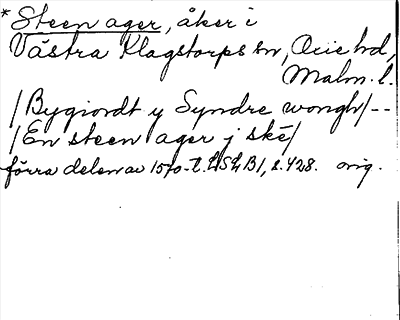 * Steen ager, åker i
Västra Klagstorps sn, Oxie hd,
Malm. l.
/Bygiordt y Syndre wongh/--
/En steen ager j ske/
förra delen av 1570-t. LSLB1, s. 428. orig.